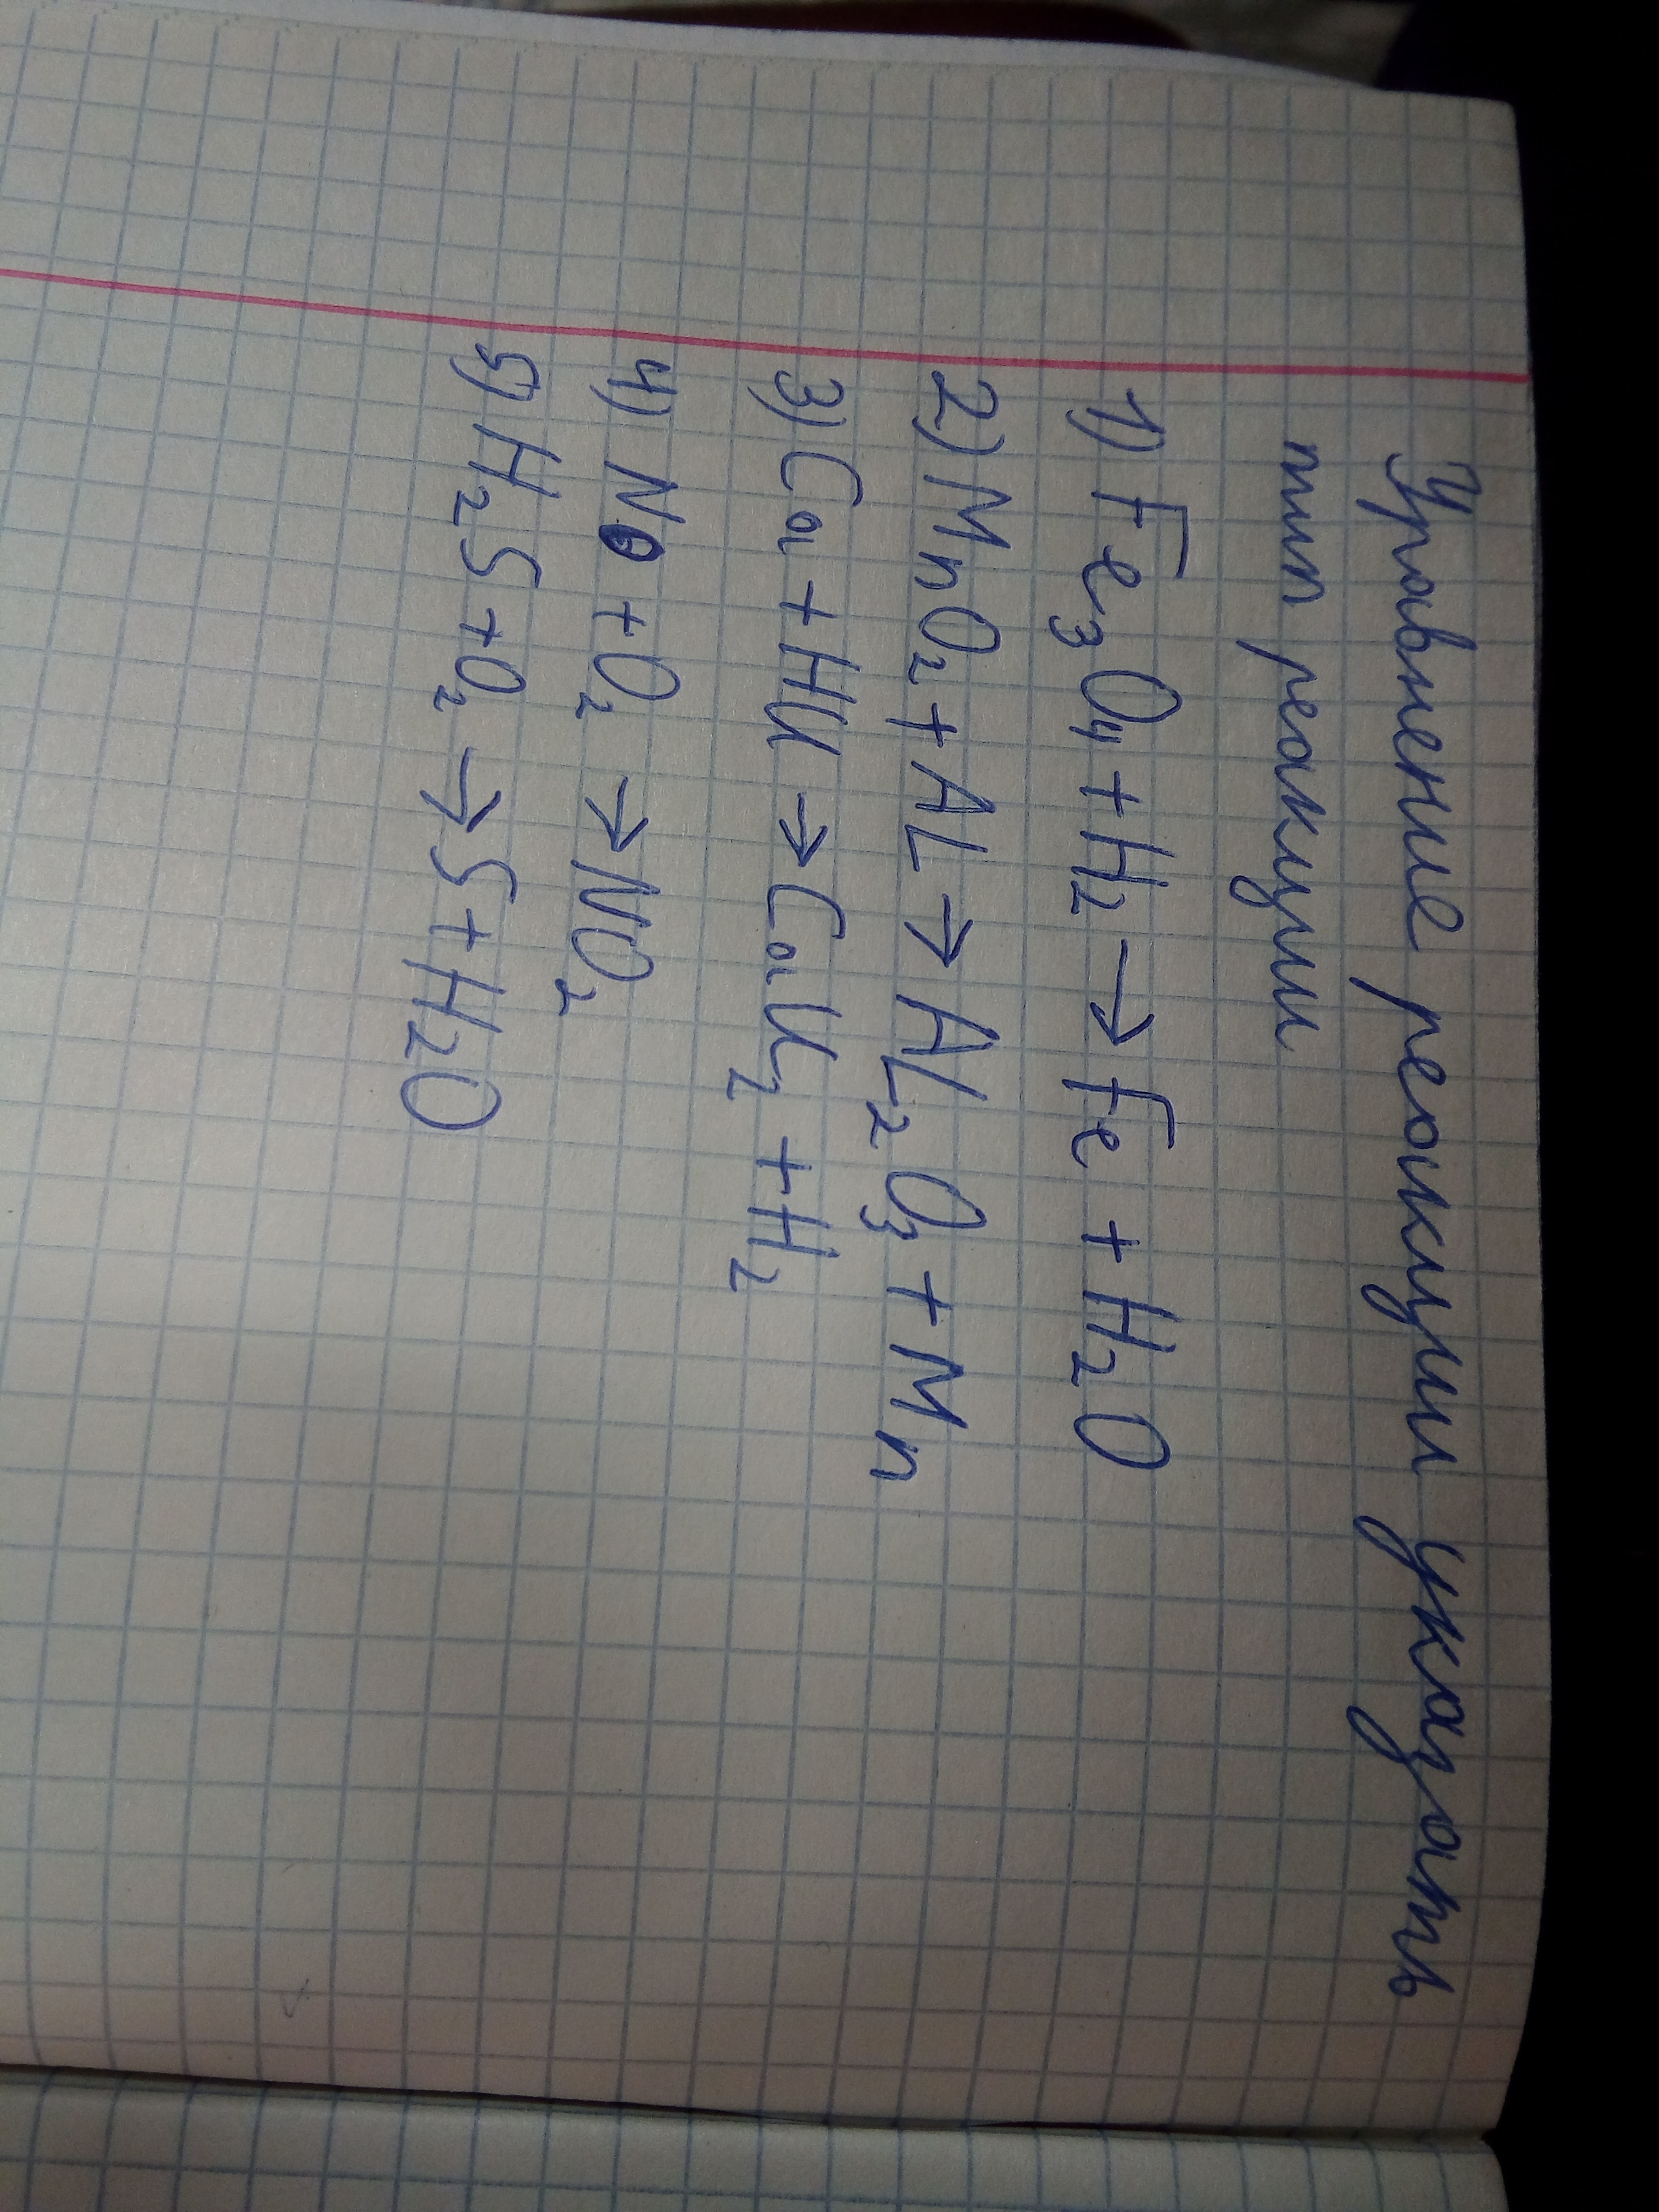 Уравнение реакции указать
тип реакции
1) Fe₃O₄ + H₂ → Fe + H₂O
2) MnO₂ + AL → AL₂O₃ + Mn
3) Ca + HCl → CaCl₂ + H₂
4) NO + O₂ → NO₂
5) H₂S + O₂ → S + H₂O